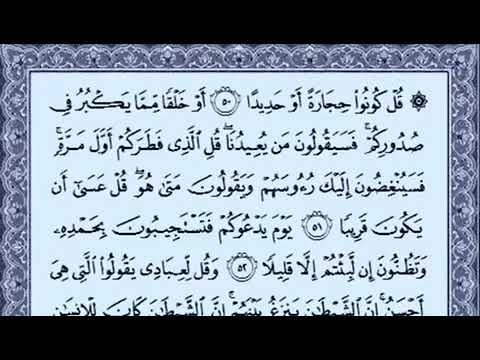 ۞ قُلْ كُونُوا۟ حِجَارَةً أَوْ حَدِيدًا ۝٥٠ أَوْ خَلْقًا مِّمَّا يَكْبُرُ فِى
صُدُورِكُمْ ۚ فَسَيَقُولُونَ مَن يُعِيدُنَا ۖ قُلِ ٱلَّذِى فَطَرَكُمْ أَوَّلَ مَرَّةٍ ۚ
فَسَيُنْغِضُونَ إِلَيْكَ رُءُوسَهُمْ وَيَقُولُونَ مَتَىٰ هُوَ ۖ قُلْ عَسَىٰٓ أَن
يَكُونَ قَرِيبًا ۝٥١ يَوْمَ يَدْعُوكُمْ فَتَسْتَجِيبُونَ بِحَمْدِهِۦ
وَتَظُنُّونَ إِن لَّبِثْتُمْ إِلَّا قَلِيلًا ۝٥٢ وَقُل لِّعِبَادِى يَقُولُوا۟ ٱلَّتِى هِىَ
أَحْسَنُ ۚ إِنَّ ٱلشَّيْطَٰنَ يَنزَغُ بَيْنَهُمْ ۚ إِنَّ ٱلشَّيْطَٰنَ كَانَ لِلْإِنسَٰنِ